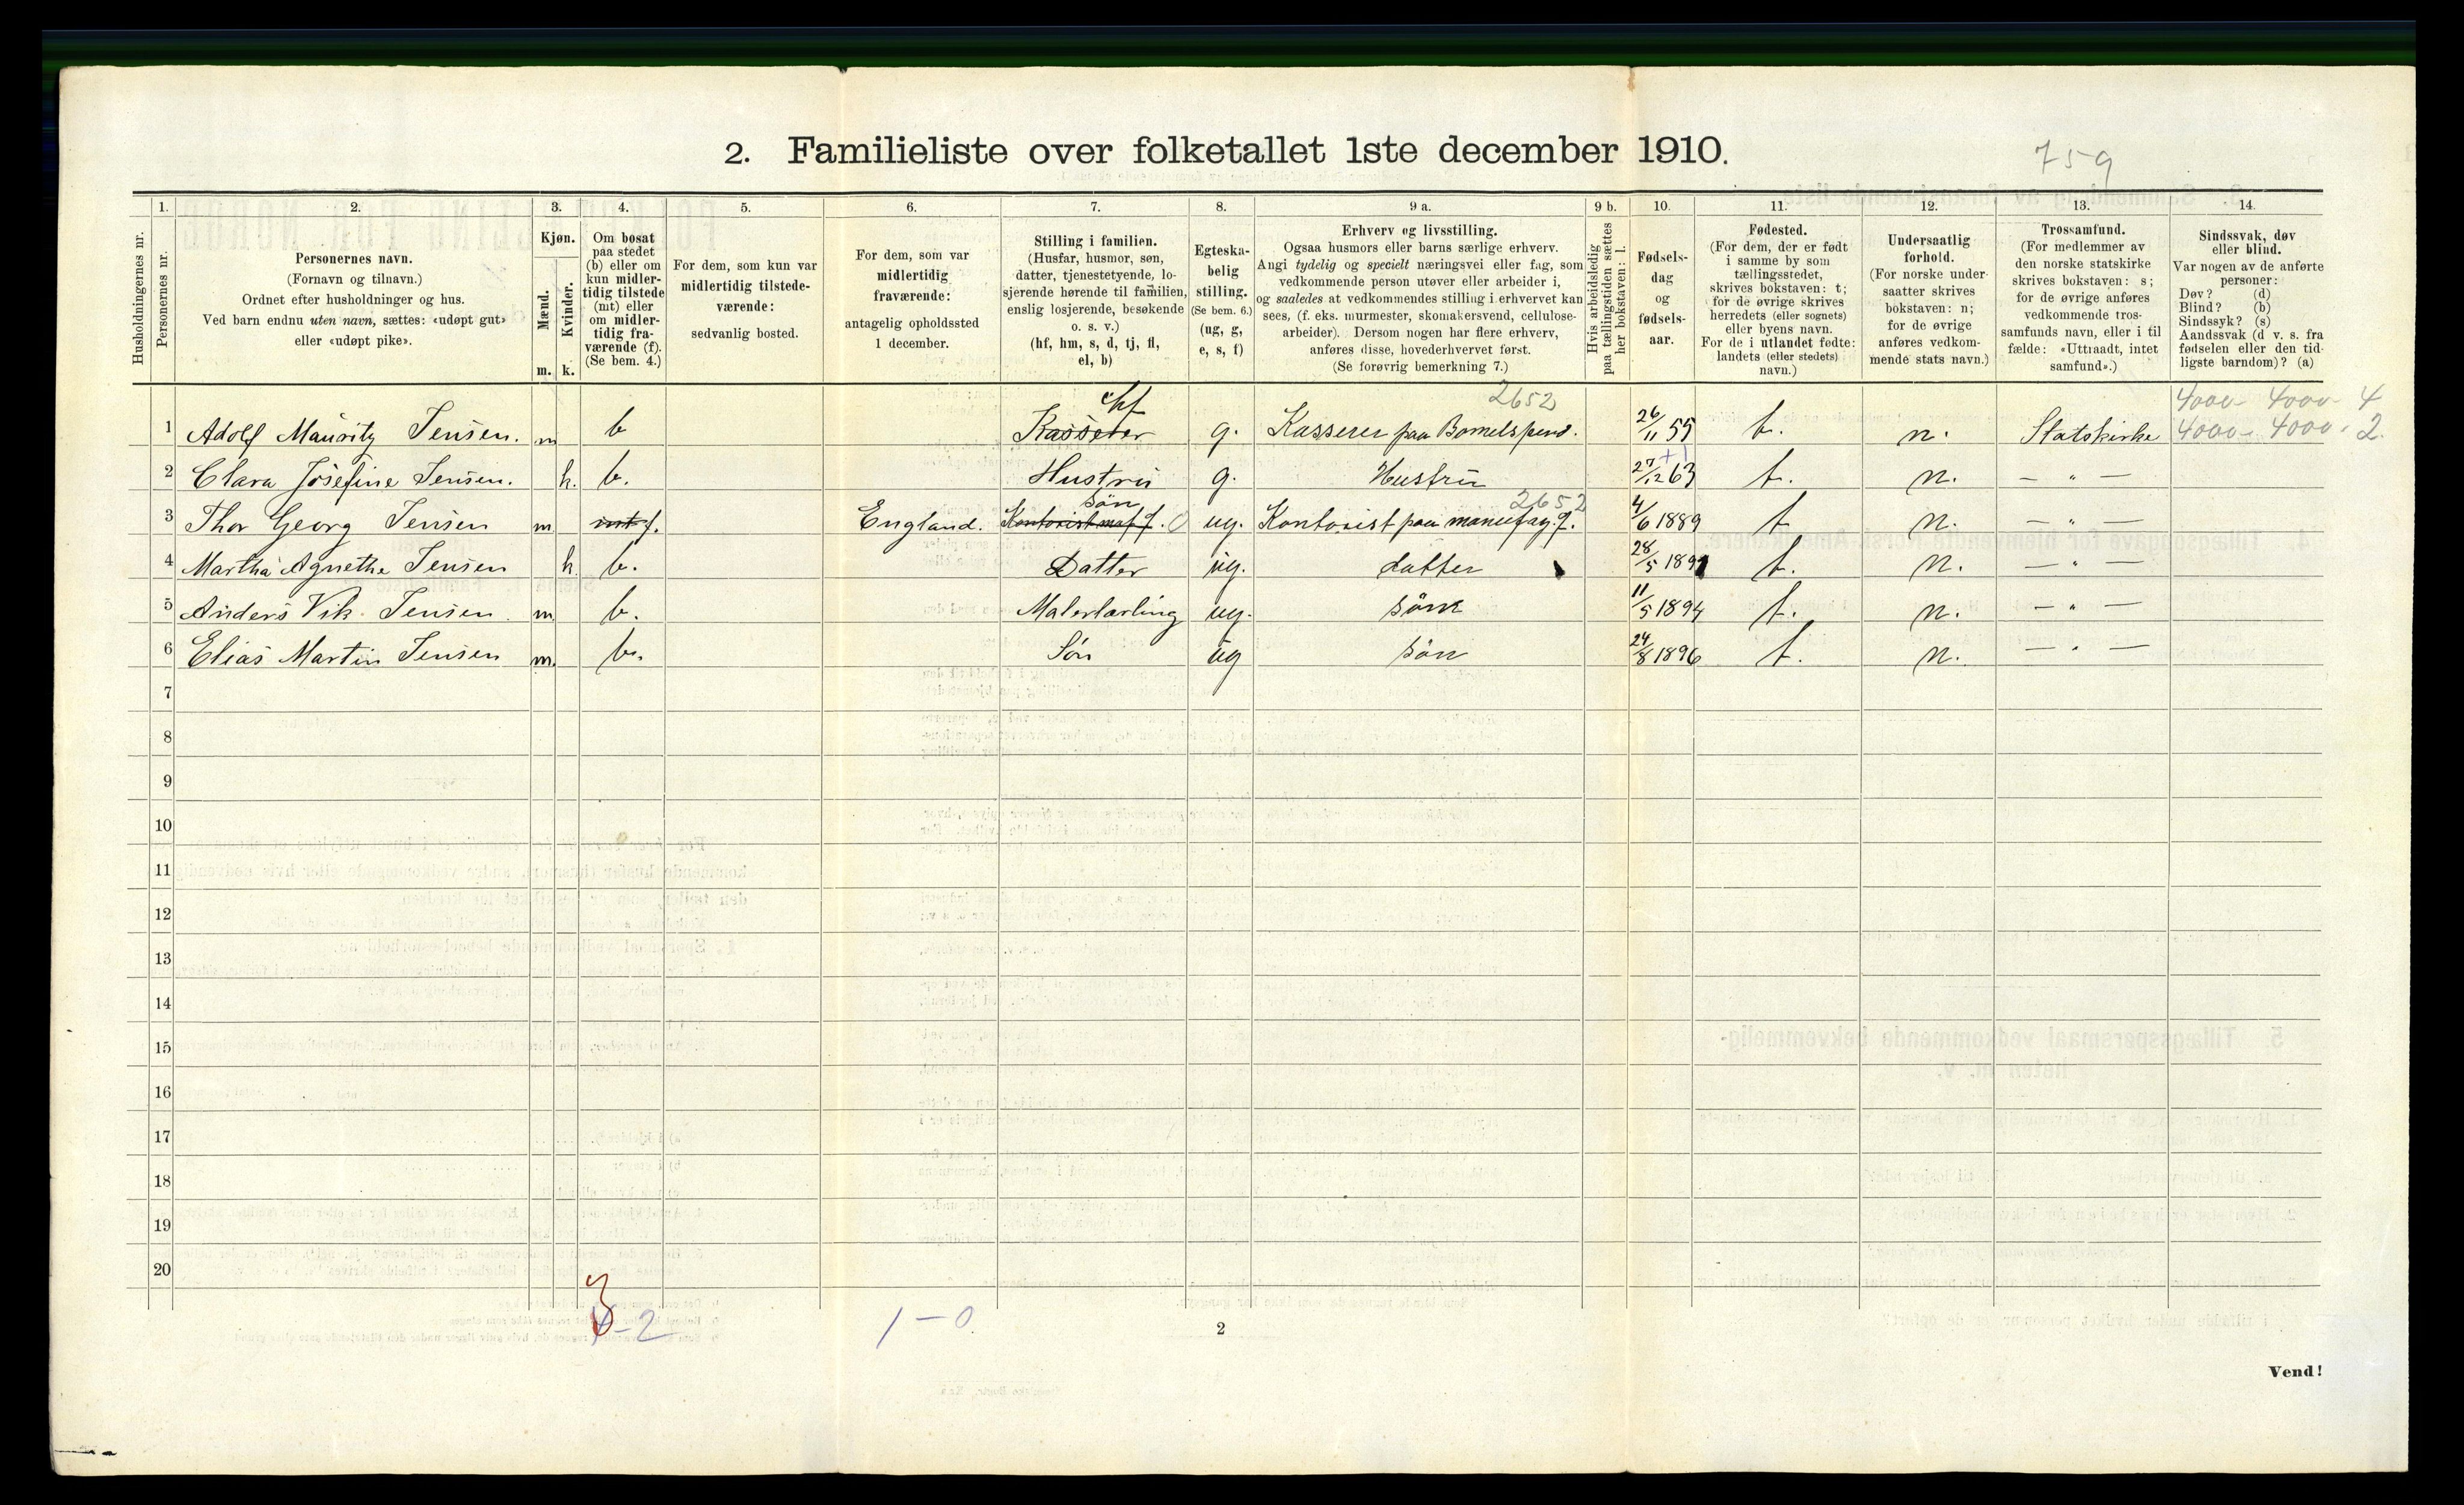 2. Familieliste over folketallet 1ste december 1910.
759
1. 2. 3. 4. 5. 6. 7. 8. 9 a. 9 b. 10. 11. 12. 13. 14.
Husholdningernes nr.
Personernes nr.
Personernes navn.
(Fornavn og tilnavn.)
Ordnet efter husholdninger og hus.
Ved barn endnu uten navn, sættes: «udøpt gut»
eller «udøpt pike».
Kjøn.
Mænd.
Kvinder.
m. k.
Om bosat
paa stedet
(b) eller om
kun midler-
tidig tilstede
(mt) eller
om midler-
tidig fra-
værende (f).
(Se bem. 4.)
For dem, som kun var
midlertidig tilstede-
værende:
sedvanlig bosted.
For dem, som var
midlertidig
fraværende:
antagelig opholdssted
1 december.
Stilling i familien.
(Husfar, husmor, søn,
datter, tjenestetyende, lo-
sjerende hørende til familien,
enslig losjerende, besøkende
o. s. v.)
(hf, hm, s, d, tj, fl,
el, b)
Egteska-
belig
stilling.
(Se bem. 6.)
(ug, g,
e, s, f)
Erhverv og livsstilling.
Ogsaa husmors eller barns særlige erhverv.
Angi tydelig og specielt næringsvei eller fag, som
vedkommende person utøver eller arbeider i,
og saaledes at vedkommendes stilling i erhvervet kan
sees, (f. eks. murmester, skomakersvend, cellulose-
arbeider). Dersom nogen har flere erhverv,
anføres disse, hovederhvervet først.
(Se forøvrig bemerkning 7.)
Hvis arbeidsledig
paa tællingstiden sættes
her bokstaven: l.
Fødsels-
dag
og
fødsels-
aar.
Fødested.
(For dem, der er født
i samme by som
tællingsstedet,
skrives bokstaven: t;
for de øvrige skrives
herredets (eller sognets)
eller byens navn.
For de i utlandet fødte:
landets (eller stedets)
navn.)
Undersaatlig
forhold.
(For norske under-
saatter skrives
bokstaven: n;
for de øvrige
anføres vedkom-
mende stats navn.)
Trossamfund.
(For medlemmer av
den norske statskirke
skrives bokstaven: s;
for de øvrige anføres
vedkommende tros-
samfunds navn, eller i til
fælde: «Uttraadt, intet
samfund».)
Sindssvak, døv
eller blind.
Var nogen av de anførte
personer:
Døv? (d)
Blind? (b)
Sindssyk? (s)
Aandssvak (d v. s. fra
fødselen eller den tid-
ligste barndom)? (a)
hf 2652 4000 - 4000 - 4
1 Adolf Mauritz Jensen. m b Kasserer g. Kasserer paa 26/11 55 t. n. Statskirke 4000 - 4000 - 2.
2 Clara Josefine Jensen. k. b. Hustru g. Hustru 27/12 63 t. n. — " —
søn 2652
3 Thor Georg Jensen m f. England. ug. Kontorist paa manufag. 4/6 1889 t n. — " —
4 Martha Agnethe Jensen k. b. Datter ug. datter 28/5 1891 t. n. — " —
5 Anders Vik. Jensen. m b. Malerlærling ug. søn 11/5 1894 t. n. — " —
6 Elias Martin Jensen m. b. Søn ug søn 24/8 1896 t. n. — " —
7
8
9
10
11
12
13
14
15
16
17
18
19
20
3
- 2 1 - 0
2
Vend!